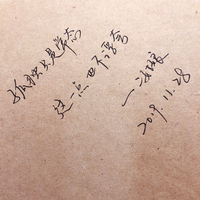 孤独只是常态
这一点也不浪食
2019.11.28